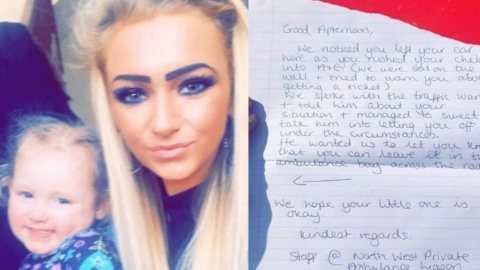 Good Afternoon,
We noticed you left your car
here as you rushed your child
into A+E (We were sat on the
wall + tried to warn you about
getting a ticket)
We spoke with the traffic
+ told him about your
situation + managed to sweet
talk him into letting you off
under the circumstances.
He wanted us to let you know
that you can leave it in the
ambulance bay across the road
We hope your little one is
okay.
Kindest regards.
Staff @ North West Private
Ambulance